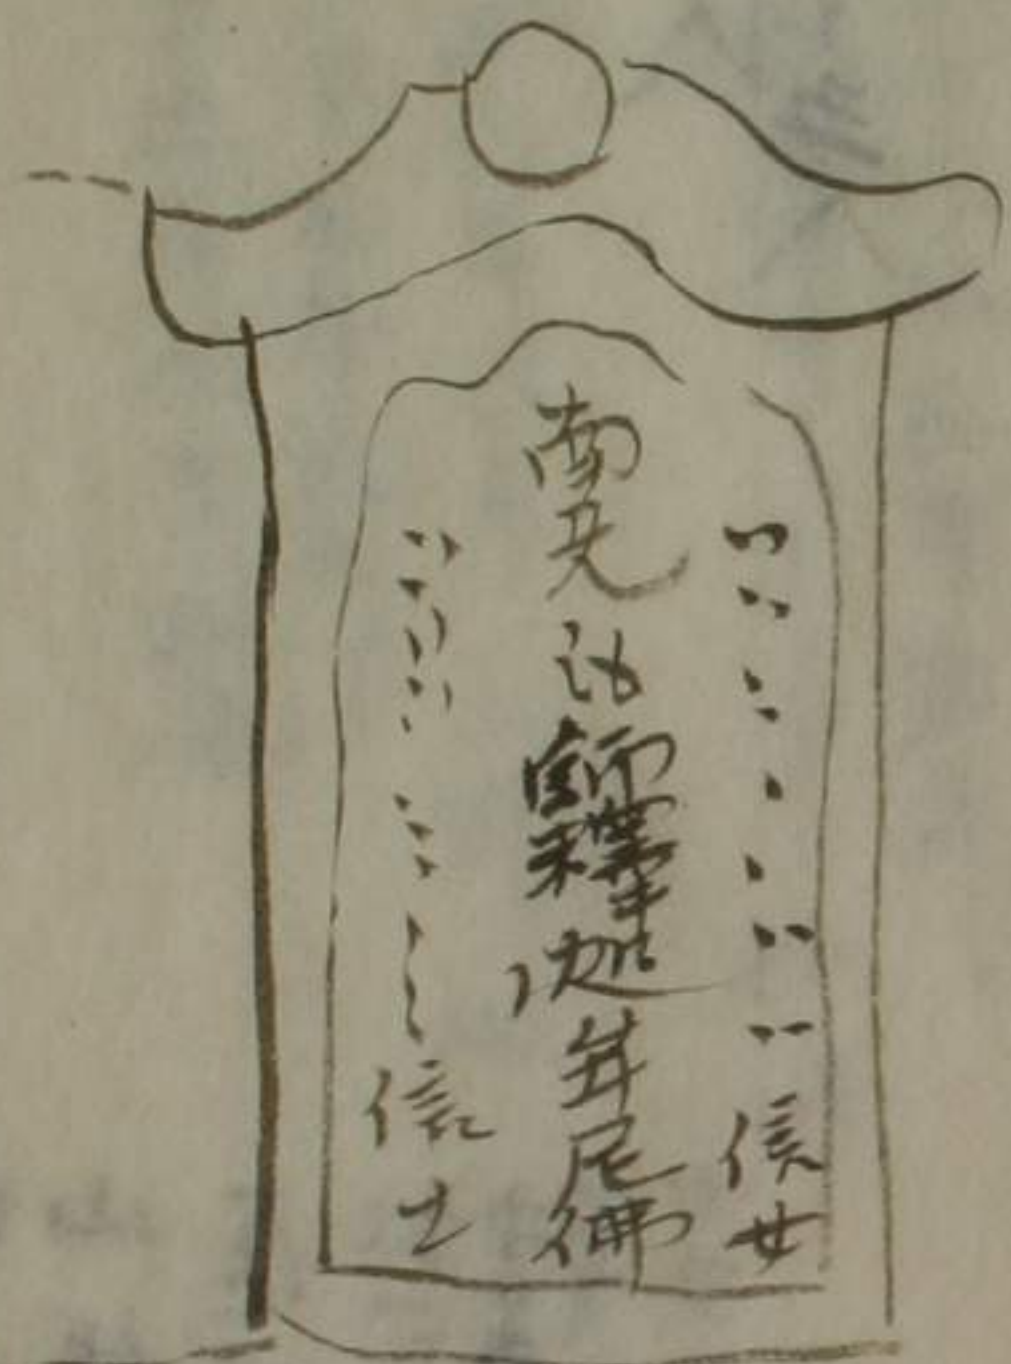 信女
南無本師釋迦牟尼佛
信士